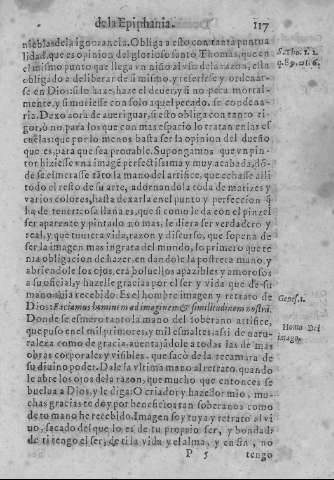 de la Epiphania.
117
nieblas de la ignorancia. Obliga a esto con tanta puntua
lidad, que es opinion del glorioso santo Thomas, que en
el mismo punto que llega vn niño al vso de la razon, esta
obligado a deliberar de si mismo, y referirse y ordenar-
se en Dios: si lo haze, haze el deuer, y si no peca mortal-
mente, y si muriesse con solo aquel pecado, se condena-
ria. Dexo aora de aueriguar, si esto obliga con tanto ri-
gor, ò no, para los que con mas espacio lo tratan en las es
cuelas: que por lo menos basta ser la opinion del dueño
que es, para que sea prouable. Supongamos que vn pin-
tor hiziesse vna imagē perfectissima y muy acabada, dō-
de se esmerasse tāto la mano del artifice, que echasse alli
todo el resto de su arte, adornandola toda de matizes y
varios colores, hasta dexarla en el punto y perfeccion q̄
ha de tener: cosa llana es, que si como le da con el pinzel
ser aparente y pintado no mas, le diera ser verdadero y
real, y que tuuiera vida, razon y discurso, que sopena de
ser la imagen mas ingrata del mundo, lo primero que te
nia obligacion de hazer, en dandole la postrera mano y
abriendole los ojos, era boluellos apazibles y amorosos
a su oficial, y hazelle gracias por el ser y vida que de su
mano auia recebido. Es el hombre imagen y retrato de
Dios: Faciamus hominem ad imaginem & similitudinem nostrā.
Donde se esmerò tanto la mano del soberano artifice,
que puso en el mil primores, y mil esmaltes, assi de natu-
raleza como de gracia, auentajādole a todas las de mas
obras corporales y visibles, que sacò de la recamara de
su diuino poder. Dale la vltima mano al retrato, quando
le abre los ojos de la razon, que mucho que entonces se
buelua a Dios, y le diga: O criador y hazedor mio, mu-
chas gracias te doy por beneficios tan soberanos como
de tu mano he recebido. Imagen soy tuya y retrato al vi
uo, sacado del que lo es de tu proprio ser, y bondad:
de ti tengo el ser, de ti la vida y el alma, y en fin, no
P 5
tengo
S. Tho. 1. 2.
q. 89. ar. 6.
Genes. 1.
Homo Dei
imago.